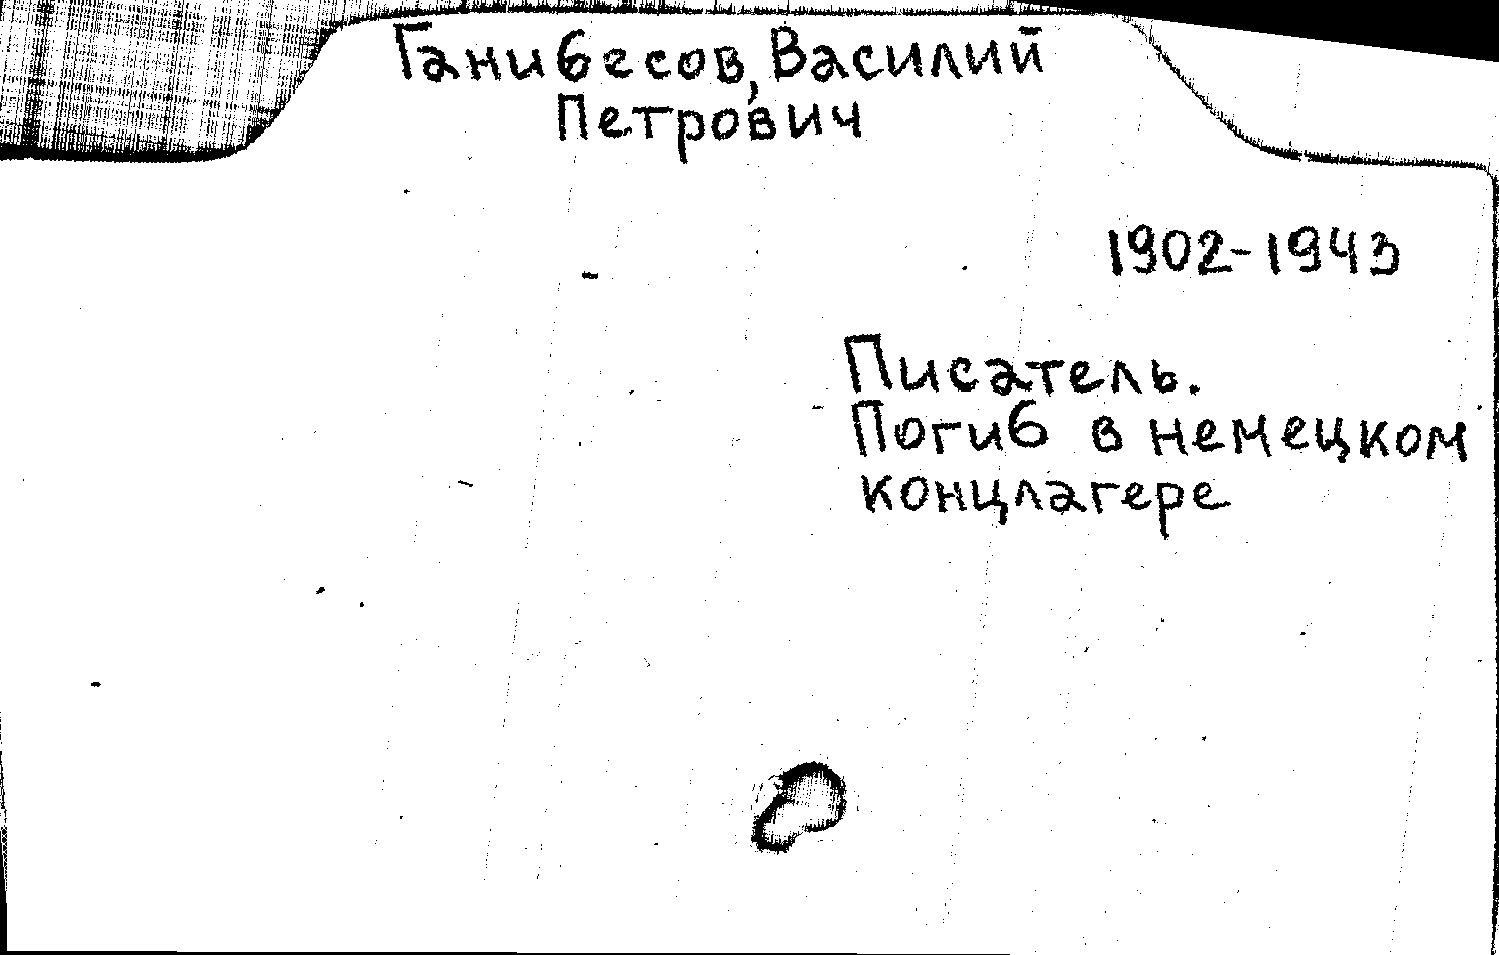 Ганибесов, Василий
Петрович
1902-1943
Писатель.
Погиб в немецком
концлагере